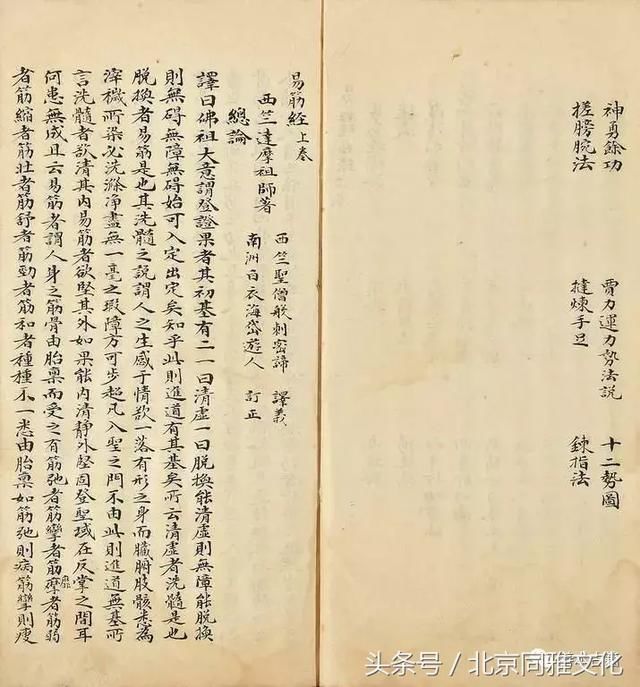 神勇餘功 賈力運力勢法說 十二勢圖
搓膀腕法 撻煉手足 鍊指法
易筋經上卷
西竺達摩祖師著 西竺聖僧般刺密諦 譯義
南洲白衣海岱遊人 訂正
總論
譯曰佛祖大意謂登證果者其初基有二一曰清虛一曰脫換能清虛則無障能脫換
則無碍無障無碍始可入定出定矣知乎此則進道有其基矣所云清虛者洗髓是也
脫換者易筋是也其洗髓之說謂人之生感于情欲一落有形之身而臟腑肢骸悉為
滓穢所染必洗滌净盡無一毫之瑕障方可步超凡入聖之門不由此則進道無基所
言洗髓者欲清其內易筋者欲堅其外如果能內清靜外堅固登聖域在反掌之間耳
何患無成且云易筋者謂人身之筋骨由胎禀而受之有筋弛者筋攣者筋摩靡者筋弱
者筋縮者筋壯者筋舒者筋勁者筋和者種種不一悉由胎禀如筋弛則病筋攣則瘦
头条号 / 北京同雅文化